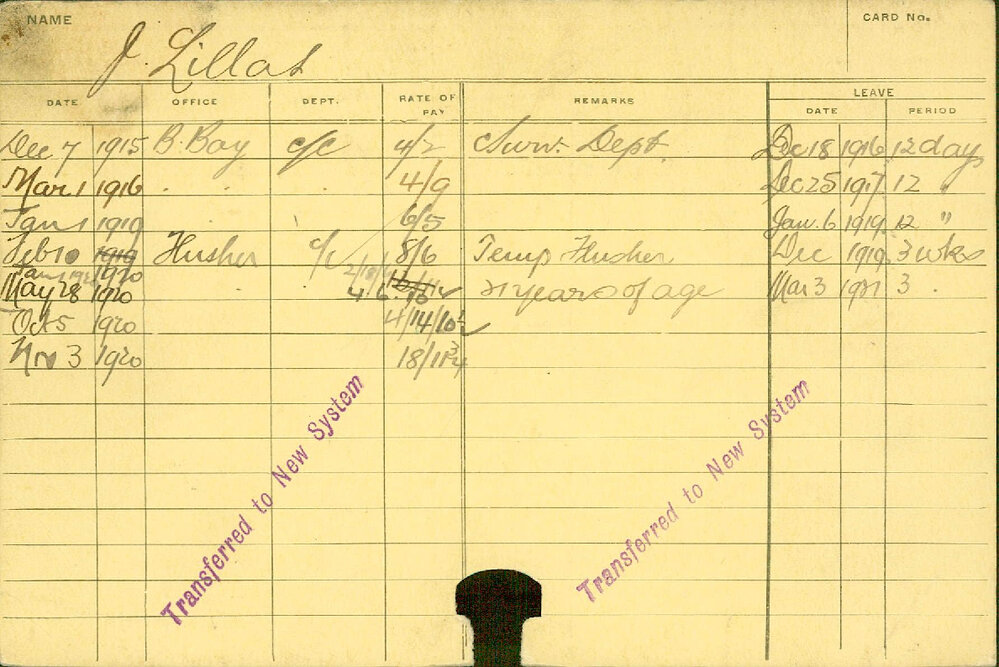 NAME J. Lillas CARD No.
LEAVE
DATE OFFICE DEPT. RATE OF PAY REMARKS DATE PERIOD
Dec 7 1915 B. Bay c/c 4/2 Surv. Dept. Dec 18 1916 12 days
Mar 1 1916 . . . 4/9 Dec 25 1917 12 "
Jan 1 1919 . . 6/5 Jan. 6 1919 12 "
Feb 10 1919 Husher c/c 8/6 Temp Husher Dec 1919 3 wks
Jan 1920
May 28 1920 . . 4. 6. 10 21 years of age Mar 3 1921 3 .
Oct 5 1920 4/14/10½
Nov 3 1920 18/11¾
Transferred to New System
Transferred to New System